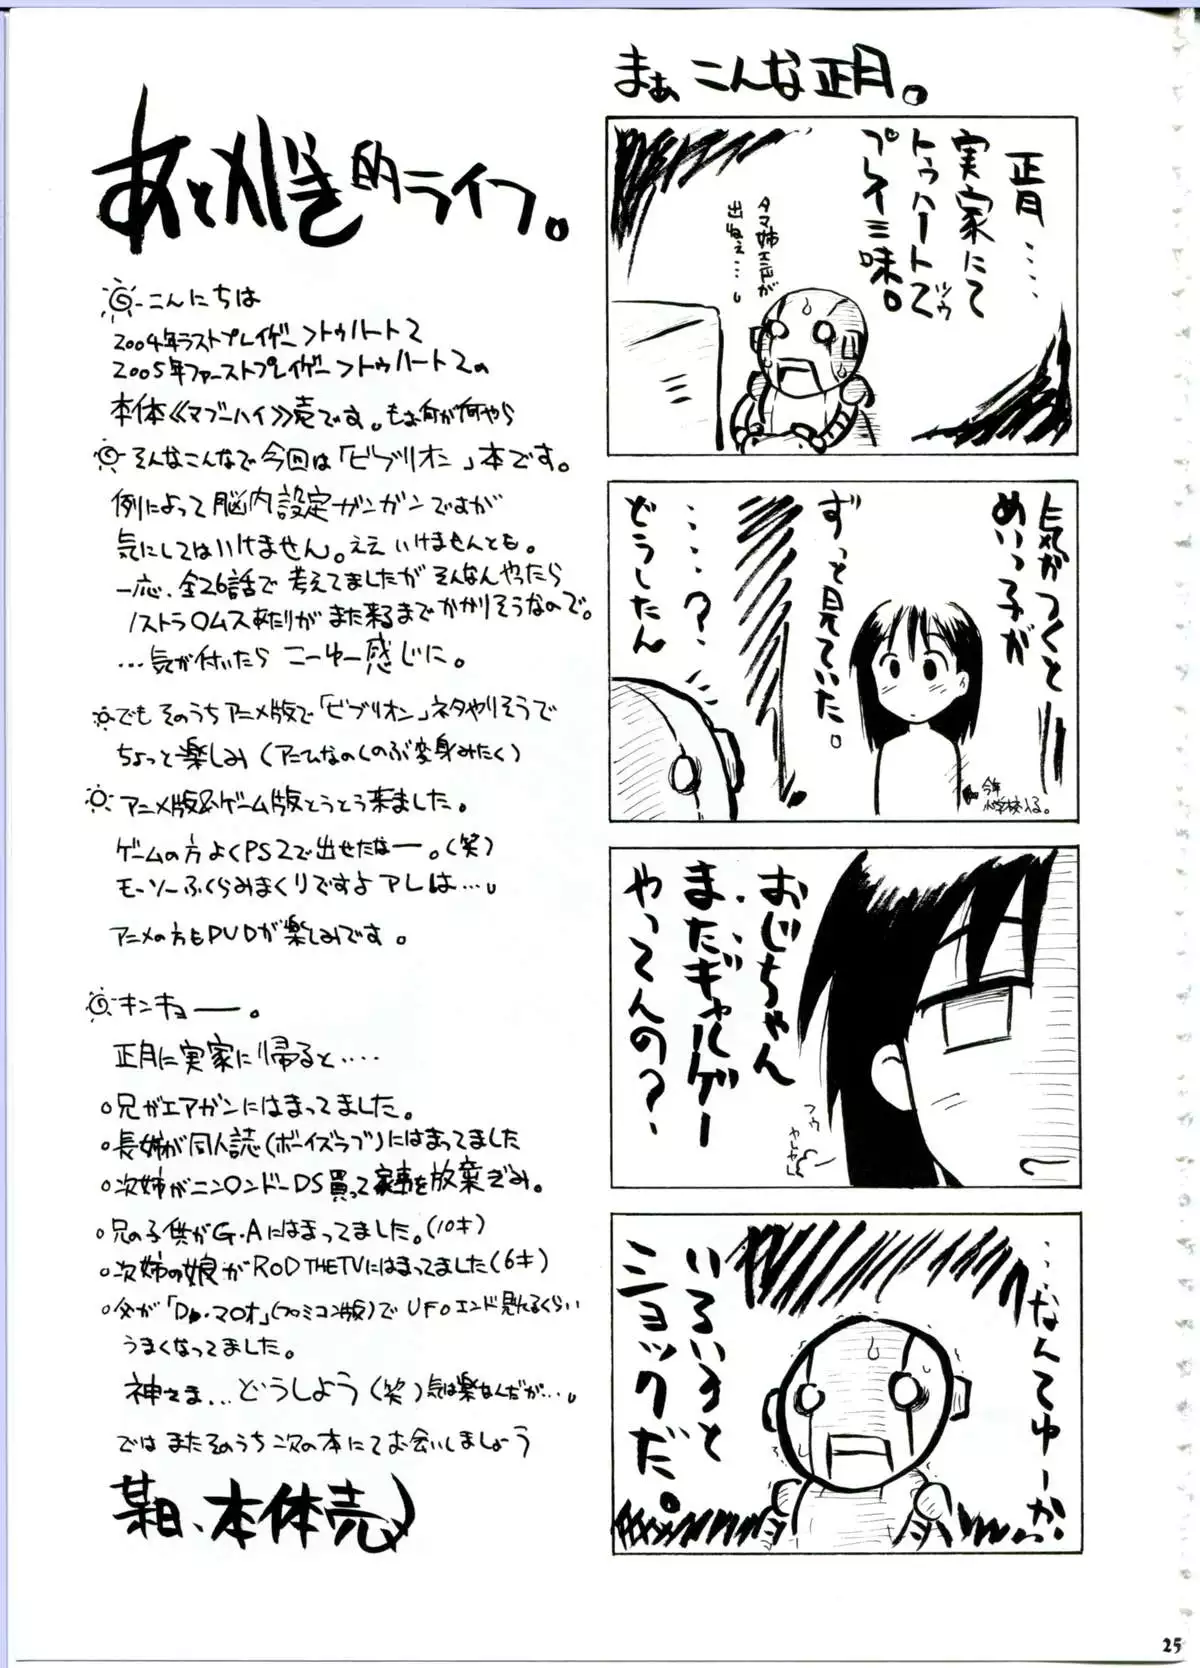 まぁ こんな正月。
正月・・・・
実家にて
トゥハートで
ツゥ
プレイ三昧。
タマ姉エンドが
出ねぇ・・・。
気がつくと
めいっ子が
ずっと見ていた。
・・・・?
どうしたん
今年
小学校入る。
おじちゃん
また・・・ギャルゲー
やってんの?
フゥ
やれやれ
・・・なんてゆーか
いろいろと
ショックだ。
あとがき的ライフ。
こんにちは
2004年ラストプレイゲー>トゥハート2
2005年ファーストプレイゲー>トゥハート2の
本体《マブーハイ》売です。もぉ何が何やら
そんなこんなで今回は「ビブリオン」本です。
例によって脳内設定ガンガンですが
気にしてはいけません。ええ いけませんとも。
一応、全26話で考えてましたが そんなんやったら
ノストラ○ムスあたりがまた来るまでかかりそうなので。
...気が付いたら こーゆー感じに。
でも そのうちアニメ版で「ビブリオン」ネタやりそうで
ちょっと楽しみ(アニひなのしのぶ変身みたく)
アニメ版&ゲーム版とうとう来ました。
ゲームの方 よくPS2で出せたなー。(笑)
モーソーふくらみまくりですよアレは...。
アニメの方もDVDが楽しみです。
キンキョー。
正月に実家に帰ると・・・・
○兄がエアガンにはまってました。
○長姉が同人誌(ボーイズラブ)にはまってました
○次姉がニン○ンドーDS買って家事を放棄ぎみ。
○兄の子供がG・Aにはまってました。(10才)
○次姉の娘がROD THE TVにはまってました(6才)
○父が「Dr.マ○オ」(ファミコン版)でUFOエンド見れるくらい
うまくなってました。
神さま...どうしよう(笑)気は楽なんだが...。
では またそのうち 次の本にてお会いしましょう
某日、本体売
25